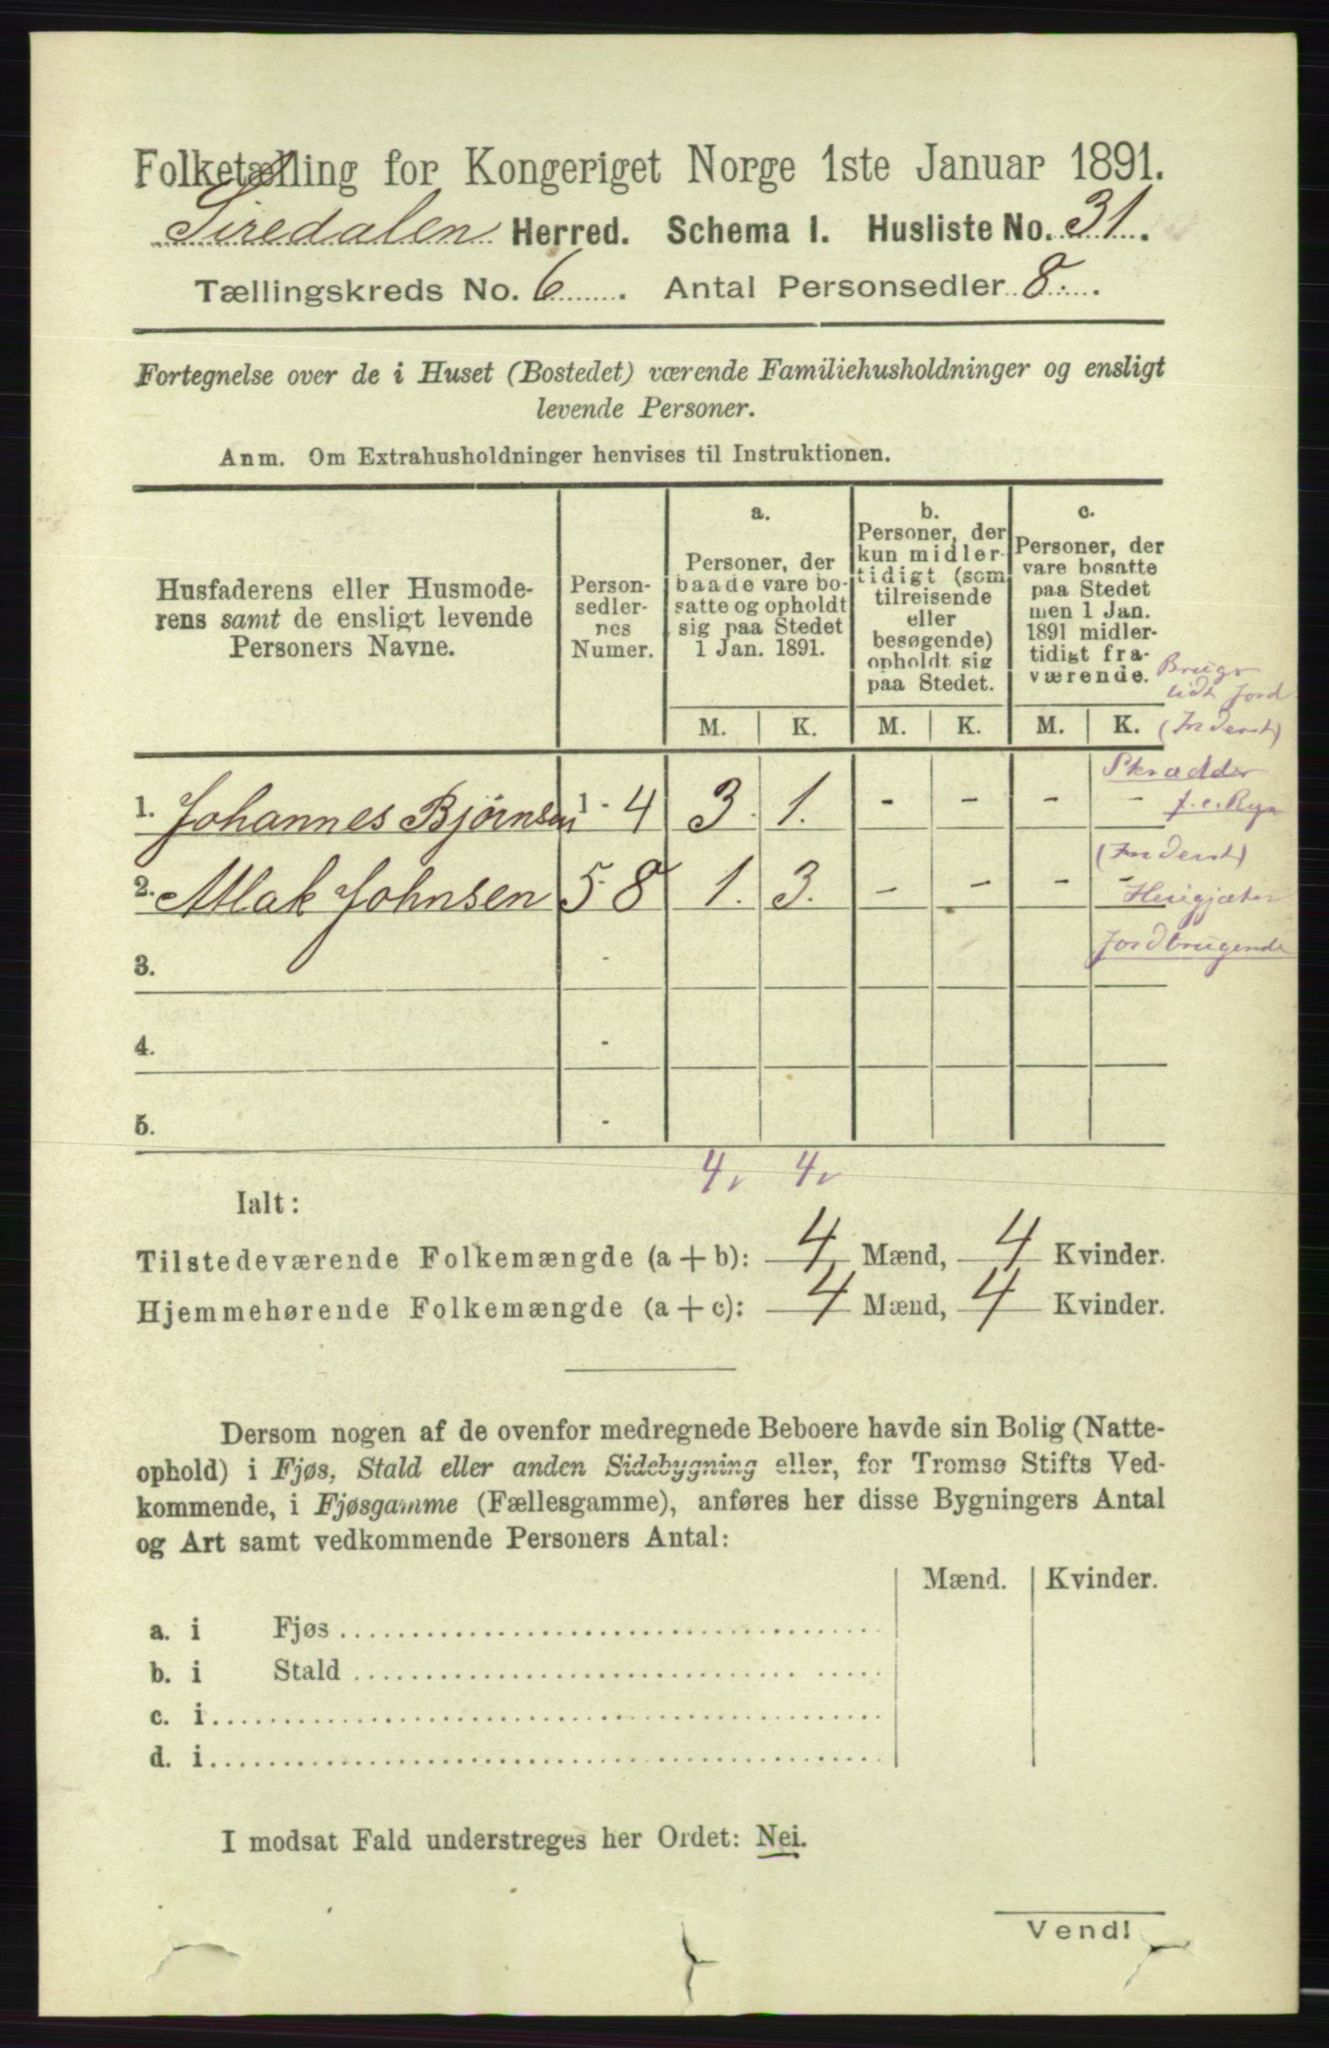 Folketælling for Kongeriget Norge 1ste Januar 1891.
Siredalen Herred. Schema I. Husliste No. 31.
Tællingskreds No. 6. Antal Personsedler 8.
Fortegnelse over de i Huset (Bostedet) værende Familiehusholdninger og ensligt
levende Personer.
Anm. Om Extrahusholdninger henvises til Instruktionen.
Husfaderens eller Husmode-
rens samt de ensligt levende
Personers Navne.
Person-
sedler-
nes
Numer.
a.
Personer, der
baade vare bo-
satte og opholdt
sig paa Stedet
1 Jan. 1891.
b.
Personer, der
kun midler-
tidigt (som
tilreisende
eller
besøgende)
opholdt sig
paa Stedet.
c.
Personer, der
vare bosatte
paa Stedet
men 1 Jan.
1891 midler-
tidigt fra-
værende.
Brugr
lidt Jord
(Inderst)
M. K. M. K. M. K.
Skrædder
1. Johannes Bjørnsen 1 - 4 3. 1. - - - - f. e. Rgn
(Inderst)
2. Atlak Johnsen 5 - 8 1. 3. - - - -
Jordbrugende
3. -
4. -
5. -
4 4
Ialt:
Tilstedeværende Folkemængde (a + b): 4 Mænd, 4 Kvinder.
Hjemmehørende Folkemængde (a + c): 4 Mænd, 4 Kvinder.
Dersom nogen af de ovenfor medregnede Beboere havde sin Bolig (Natte-
ophold) i Fjøs, Stald eller anden Sidebygning eller, for Tromsø Stifts Ved-
kommende, i Fjøsgamme (Fællesgamme), anføres her disse Bygningers Antal
og Art samt vedkommende Personers Antal:
Mænd. Kvinder.
a. i Fjøs
b. i Stald
c. i
d. i
I modsat Fald understreges her Ordet: Nei.
Vend!